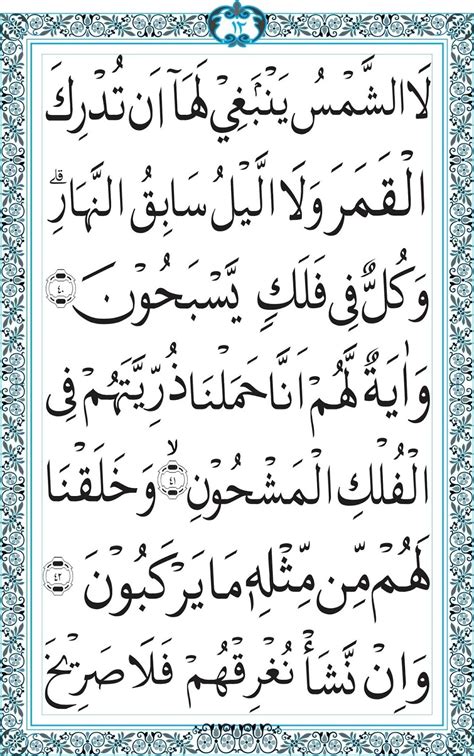 ١٣
لَا الشَّمْسُ يَنْبَغِيْ لَهَآ اَنْ تُدْرِكَ
الْقَمَرَ وَلَا الَّيْلُ سَابِقُ النَّهَارِ ۗ
وَكُلٌّ فِيْ فَلَكٍ يَّسْبَحُوْنَ ﴿٤٠﴾
وَاٰيَةٌ لَّهُمْ اَنَّا حَمَلْنَا ذُرِّيَّتَهُمْ فِى
الْفُلْكِ الْمَشْحُوْنِ ﴿٤١﴾ۙ وَخَلَقْنَا
لَهُمْ مِّنْ مِّثْلِهٖ مَا يَرْكَبُوْنَ ﴿٤٢﴾
وَاِنْ نَّشَأْ نُغْرِقْهُمْ فَلَا صَرِيْخَ